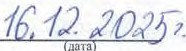 16.12.2025г.
(дата)